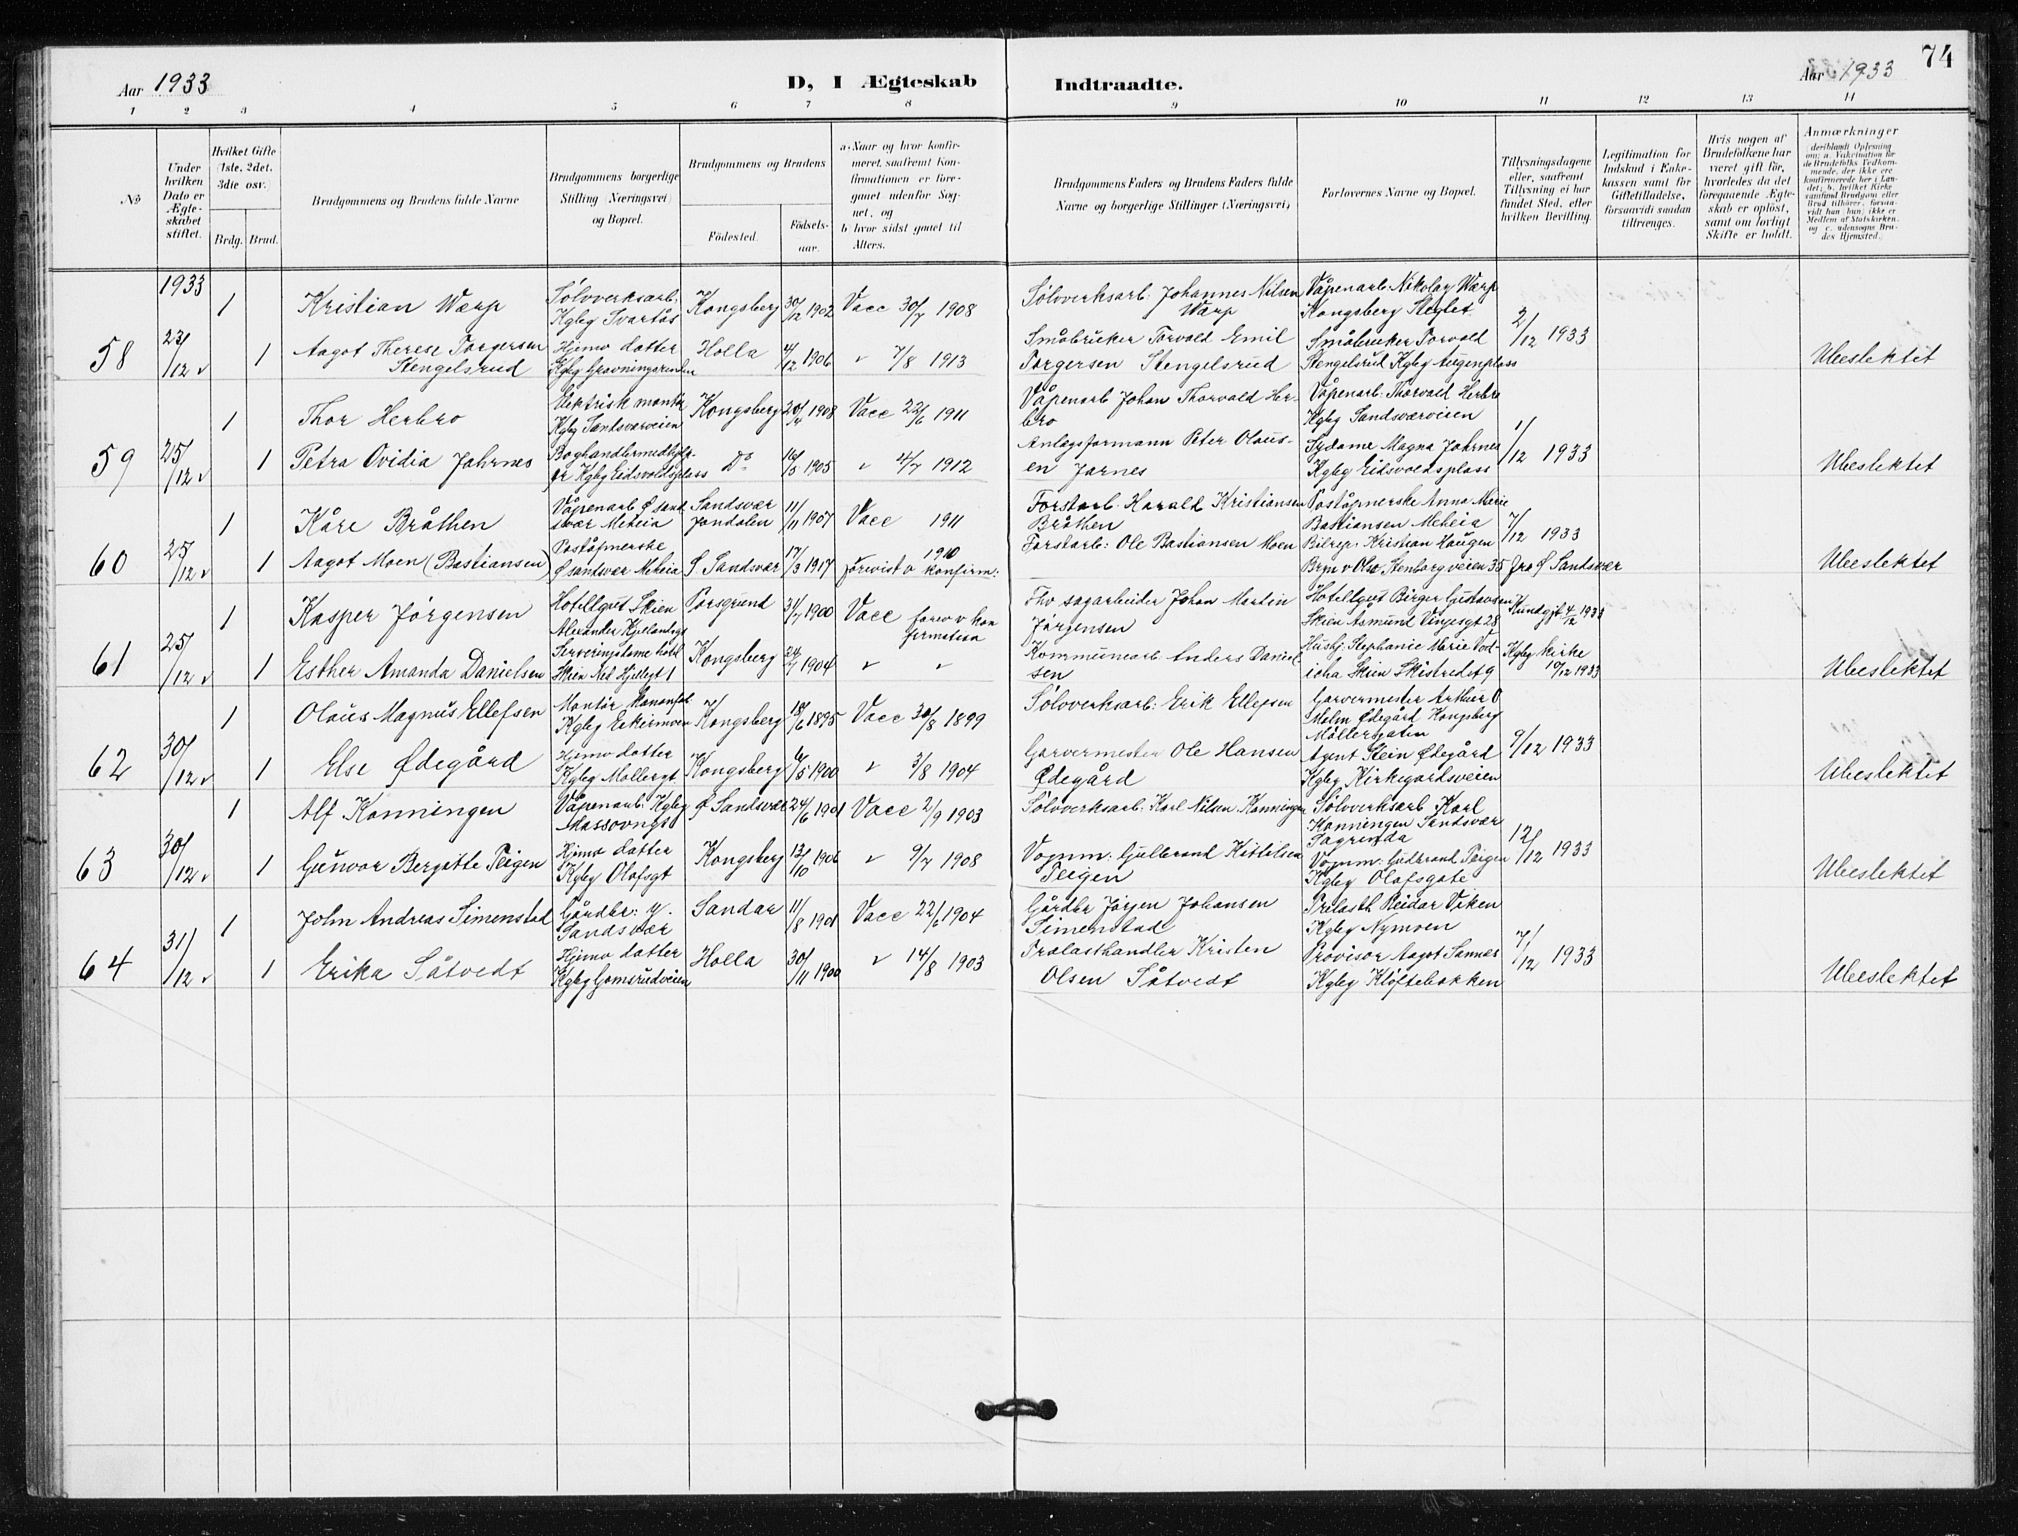 Aar 1933
D, I Ægteskab
Indtraadte.
Aar 1933
74
1 2 3 4 5 6 7 8 9 10 11 12 13 14
№
Under hvilken Dato er Ægteskabet stiftet.
Hvilket Gifte (1ste, 2det, 3die osv.)
Brdg. Brud.
Brudgommens og Brudens fulde Navne
Brudgommens borgerlige Stilling (Næringsvei) og Bopæl.
Brudgommens og Brudens
Fødested.
Fødselsaar.
a. Naar og hvor konfirmeret, saafremt Konfirmationen er foregaaet udenfor Sognet, og
b. hvor sidst gaaet til Alters.
Brudgommens Faders og Brudens Faders fulde Navne og borgerlige Stillinger (Næringsvei)
Forlovernes Navne og Bopæl.
Tillysningsdagene eller, saafremt Tillysning ei har fundet Sted, efter hvilken Bevilling.
Legitimation for Indskud i Enkekassen samt for Giftetilladelse, forsaavidt saadan tiltrænges.
Hvis nogen af Brudefolkene har været gift før, hvorledes da det foregaaende Ægteskab er opløst, samt om lovligt Skifte er holdt.
Anmærkninger
(deriblandt Oplysning om: a. Vakcination for de Brudefolks Vedkommende, der ikke ere konfirmerede her i Landet; b. hvilket Kirkesamfund Brudgom eller Brud tilhører, forsaavidt han (hun) ikke er Medlem af Statskirken, og c. udensogns Brudes Hjemsted.)
1933
58 23/12 v
1 Kristian Wærp Sølvverksarb: Kgbg Svartås Kongsberg 30/12 1902 Vacc 30/7 1908 Sølvverksarb: Johannes Nilsen Wærp Våpenarb: Nikolay Wærp Kongsberg Steglet 2/12 1933
1 Aagot Therese Torgersen Stengelsrud Hjemv datter Kgbg Holla 4/12 1906 " 7/8 1913 Småbruker Torvald Emil Torgersen Stengelsrud Småbruker Torvald Stengelsrud Kgbg Augenplass Ubeslektet
59 25/12 v
1 Thor Herbro Elektrisk montør Kgbg Sandsværveien Kongsberg 20/4 1908 Vacc 22/6 1911 Våpenarb Johan Thorvald Herbro Våpenarb: Thorvald Herbro Kgbg Sandsværveien 1/12 1933
1 Petra Ovidia Jahrnes Boghandlermedhjelper Kgbg Eidsvoldsplass Do 16/5 1905 " 4/7 1912 Anlegsformann Peter Olausen Jarnes Sydame Magna Jahrnes Kgbg Eidsvoldsplass Ubeslektet
60 25/12 v
1 Kåre Bråthen Våpenarb Ø sandsvær Meheia Sandsvær Jondalen 11/11 1907 Vacc 1911 Forstarb. Harald Kristiansen Bråthen Poståpnerske Anna Marie Bastiansen Meheia 7/12 1933
1 Aagot Moen (Bastiansen) Poståpnerske Ø sandsvær Meheia Ø Sandsvær 17/3 1917 forevist v 1910 konfirm: Forstarb: Ole Bastiansen Moen Bilrep. Kristian Haugen Brm v Olso Stenborgveien 35 fra Ø Sandsvær Ubeslektet
61 25/12 v
1 Kasper Jørgensen Hotellgut Skien Alexander Kjellandsgt Porsgrund 31/7 1900 Vacc forev v konfirmation Fhv sagarbeider Johan Martin Jørgensen Hotellgut Birger Gustavsen Skien Asmund Vinjesgt 28 Kundgjt 4/12 1933
1 Esther Amanda Danielsen Serveringsdame hotel Skien Ned Hjellegt 1 Kongsberg 24/7 1904 " " Kommunearb Anders Danielsen Hushj: Stephanie Marie Skien Skistredet 9 Kgbg kirke 10/12 1933 Ubeslektet
62 30/12 v
1 Olaus Magnus Ellefsen Montør Kgbg Eekeimoen Kongsberg 18/6 1895 Vacc 30/8 1899 Sølvverksarb: Erik Ellefsen Garvermester Arthur O Malm Ødegård Kongsberg Møllergaten 9/12 1933
1 Else Ødegård Hjemv datter Kgbg Møllergt Kongsberg 6/5 1900 " 3/8 1904 Garvermester Ole Hansen Ødegård Agent Stein Ødegård Kgbg Kirkegårdsveien Ubeslektet
63 30/12 v
1 Alf Konningen Våpenarb: Kgbg Massovngt Ø Sandsvær 24/6 1901 Vacc 2/9 1903 Sølvverksarb: Karl Nilsen Konningen Sølvverksarb Karl Konningen Sandsvær Sagrenda 12/12 1933
1 Gunvor Bergitte Teigen Hjemv datter Kgbg Olafsgt Kongsberg 13/10 1906 " 9/7 1908 Vognm: Gulbrand Kittilsen Teigen Vognm: Gudbrand Teigen Kgbg Olafsgate Ubeslektet
64 31/12 v
1 John Andreas Simenstad Gårdbr: y. Sandsvær Sandar 11/8 1901 Vacc 22/6 1904 Gårdbr Jørgen Johansen Simenstad Trelasth Reidar Viken Kgbg Nymoen 7/12 1933
1 Erika Såtvedt Hjemv datter Kgbg Gomsrudveien Holla 30/11 1900 " 14/8 1903 Trelasthandler Kristen Olsen Såtvedt Provisor Aagot Sannes Kgbg Kløftebakken Ubeslektet